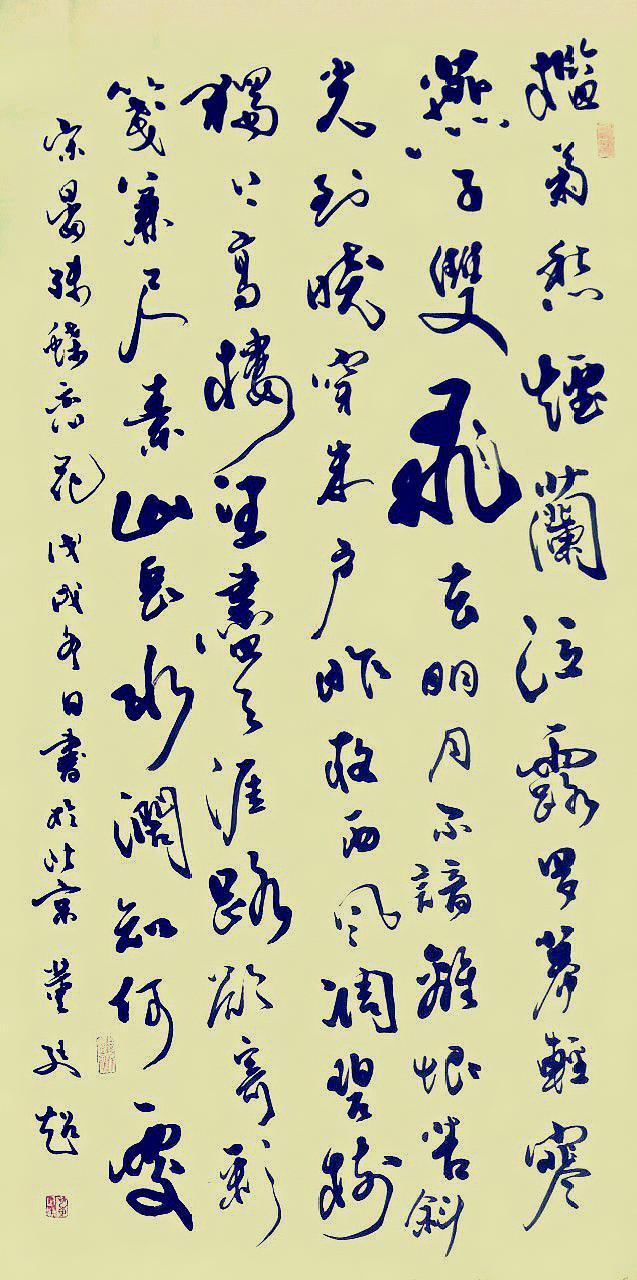 檻菊愁煙蘭泣露罗幕輕寒
燕子雙飛去明月不諳離恨苦斜
光到曉穿朱户昨夜西風凋碧樹
獨上高樓望盡天涯路欲寄彩
箋兼尺素山長水闊知何處
宋晏殊蝶恋花戊戌冬日書於北京 董 超